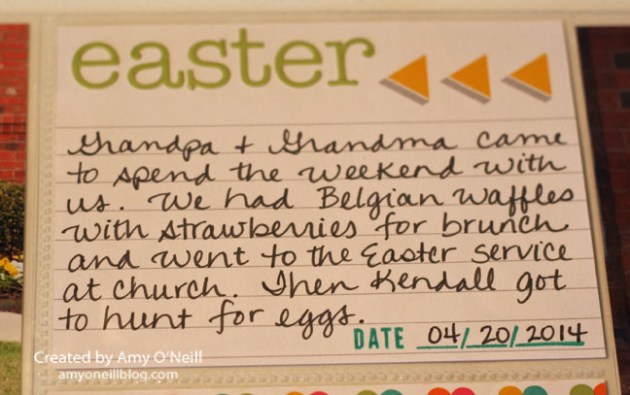 easter
Grandpa + Grandma came
to spend the weekend with
us. We had Belgian waffles
with strawberries for brunch
and went to the Easter service
at church. Then Kendall got
to hunt for eggs.
DATE 04/20/2014
Created by Amy O'Neill
amyoneillblog.com